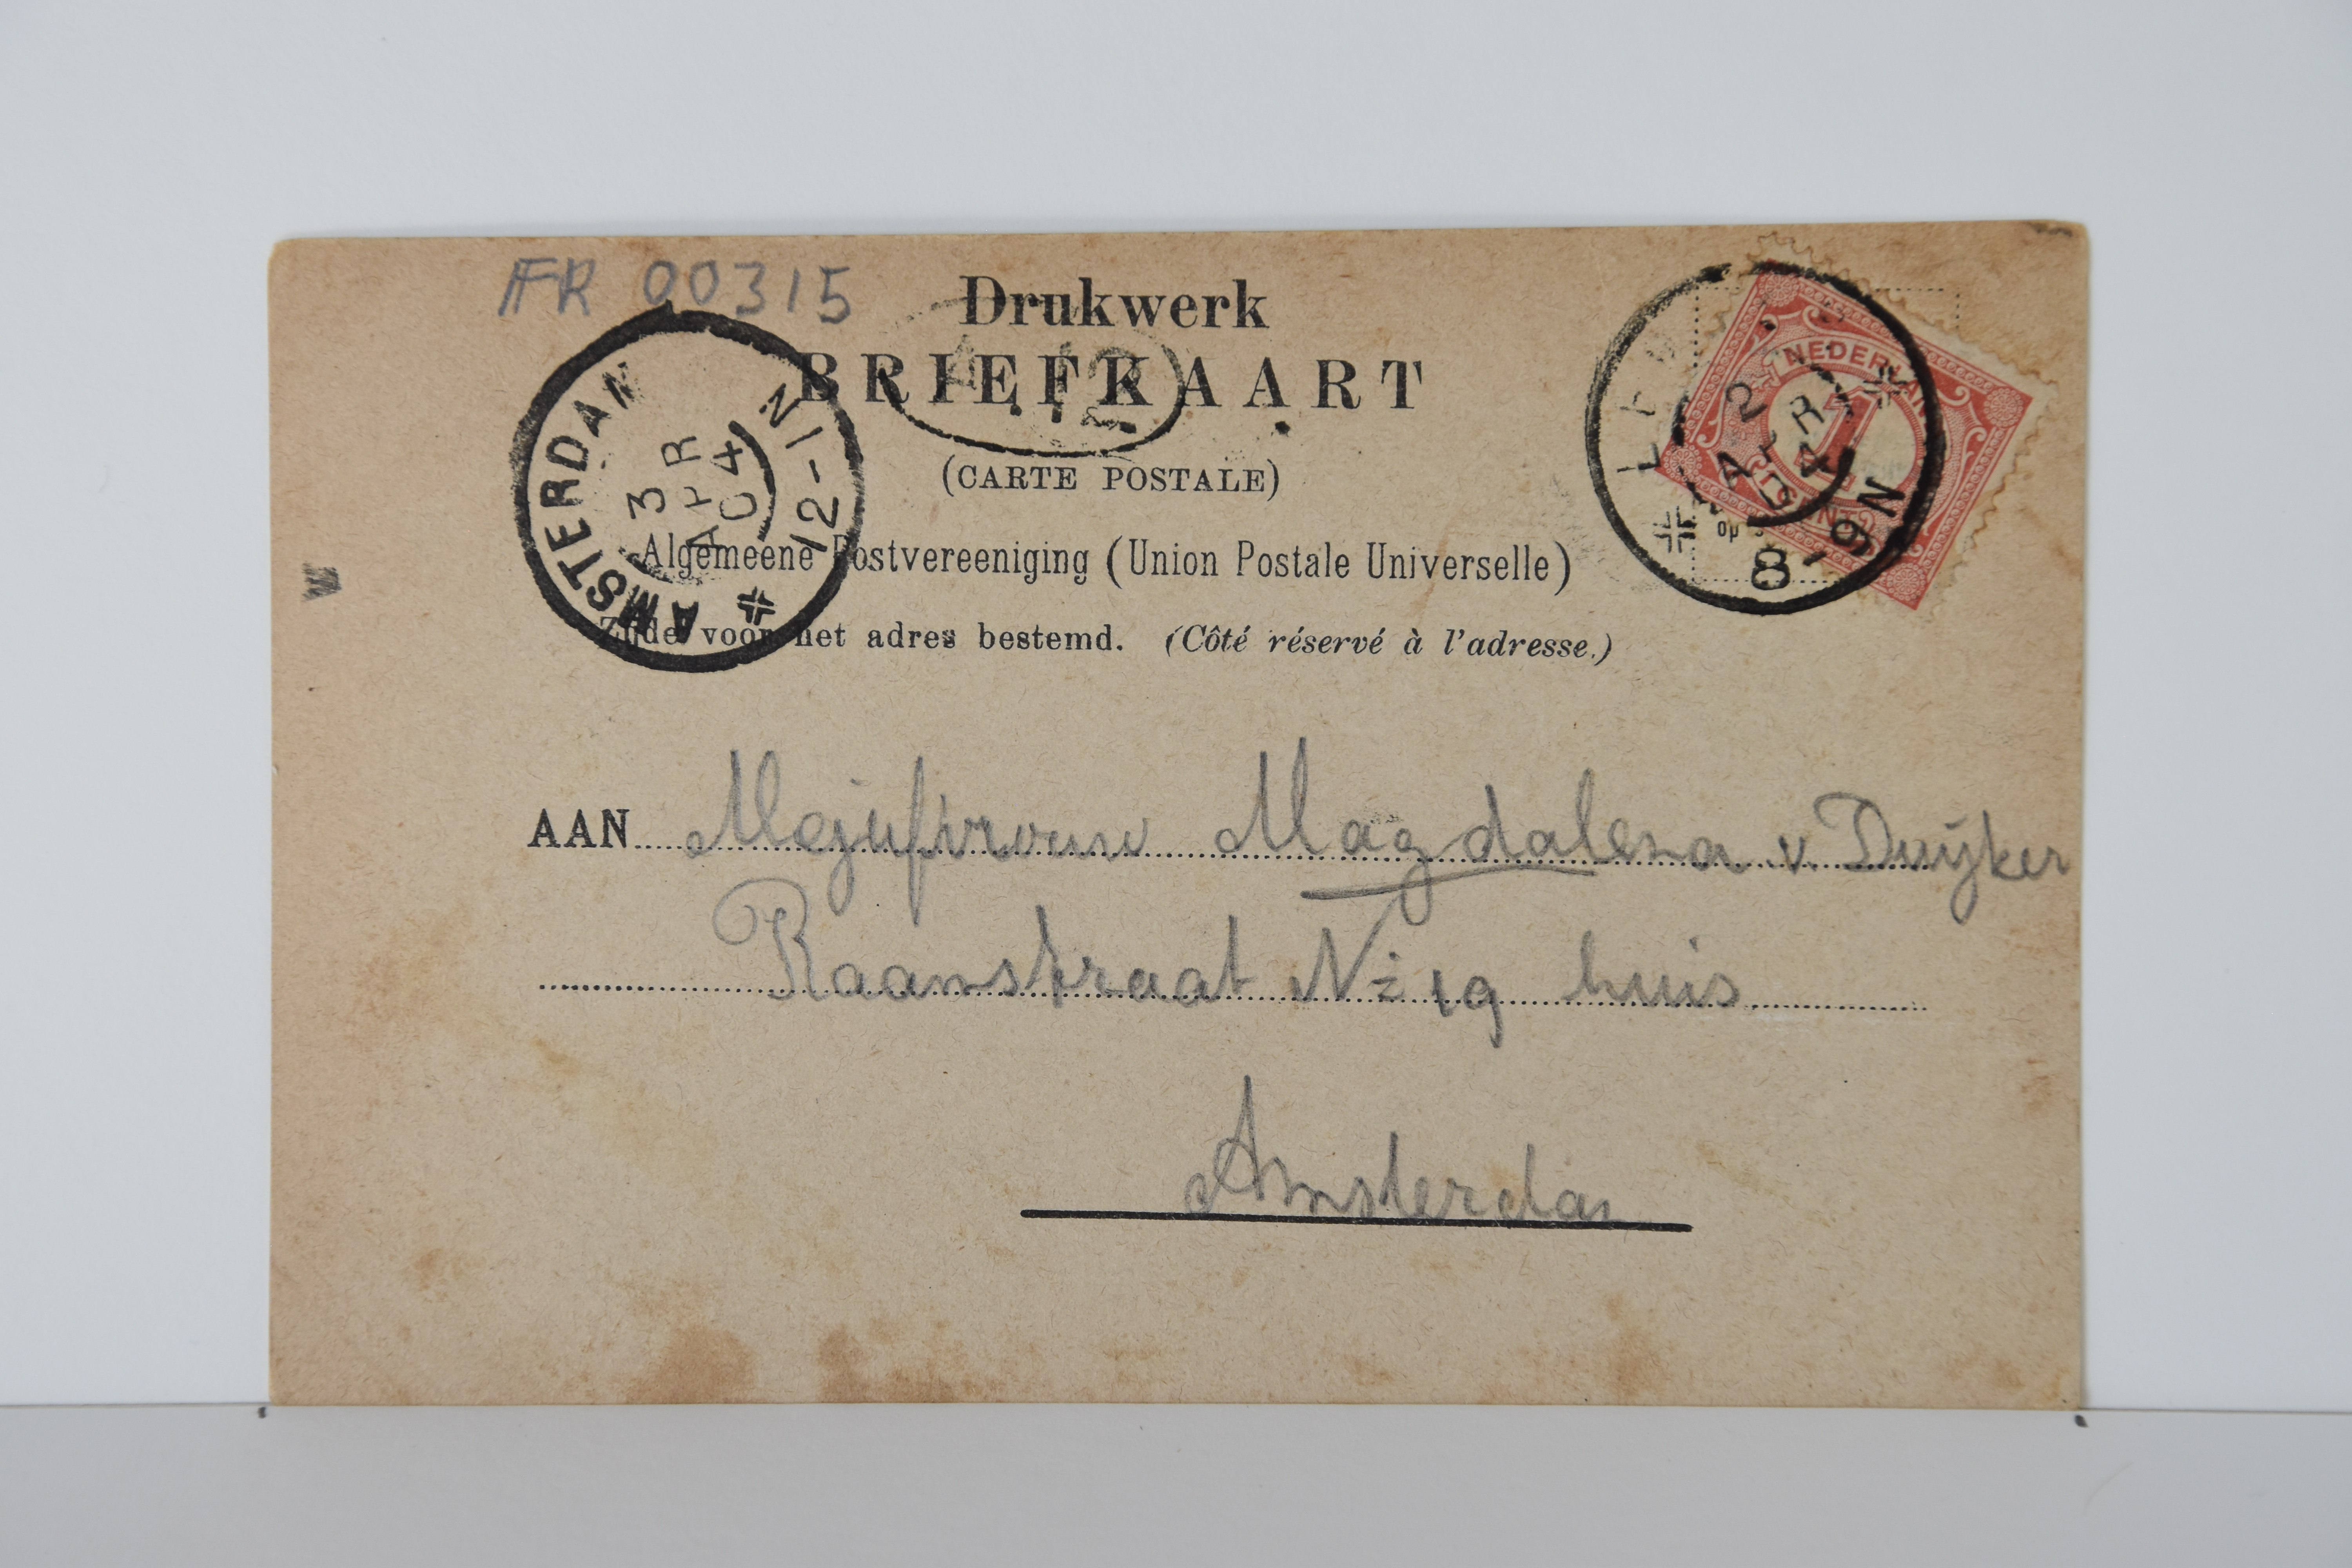 FR 00315
Drukwerk
BRIEFKAART
(CARTE POSTALE)
Algemeene Postvereeniging (Union Postale Universelle)
Zijde voor het adres bestemd. (Côté réservé à l'adresse.)
AMSTERDAM
3
APR
04
12-1N
NEDERLAND
1
CENT
2
APR
04
8-9N
op
AAN Mejufvrouw Magdalena v. Duijker
Raamstraat No 19 huis
Amsterdam